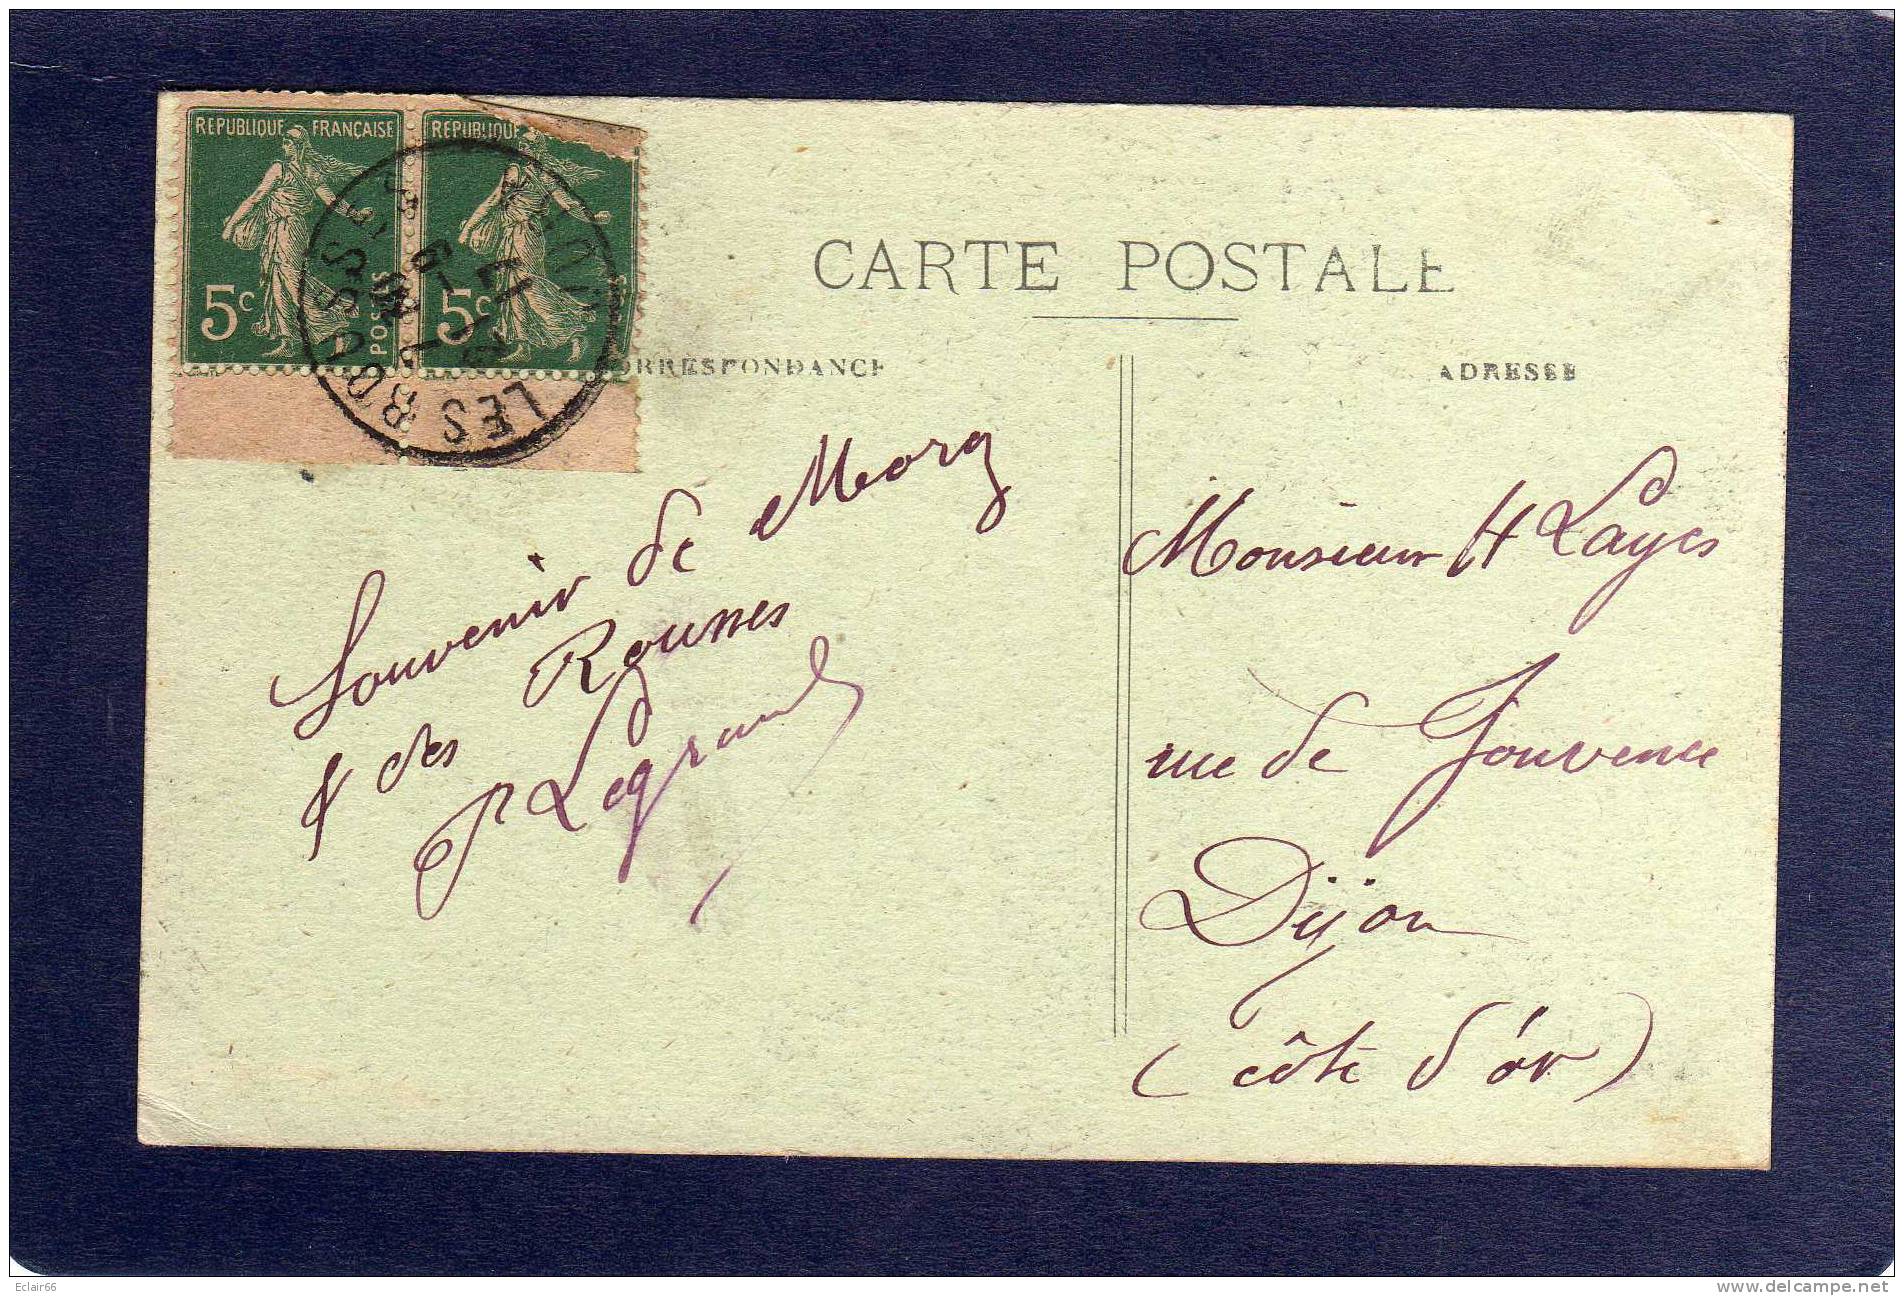 REPUBLIQUE FRANÇAISE
5c
POSTES
REPUBLIQUE
5c
LES ROUSSES
CARTE POSTALE
ORRESPONDANCE
ADRESSE
Souvenir de Morez
& des Rousses
P Legrand
Monsieur H Layes
rue de Jouvence
Dijon
(côte d'or)
Eclair66
www.delcampe.net